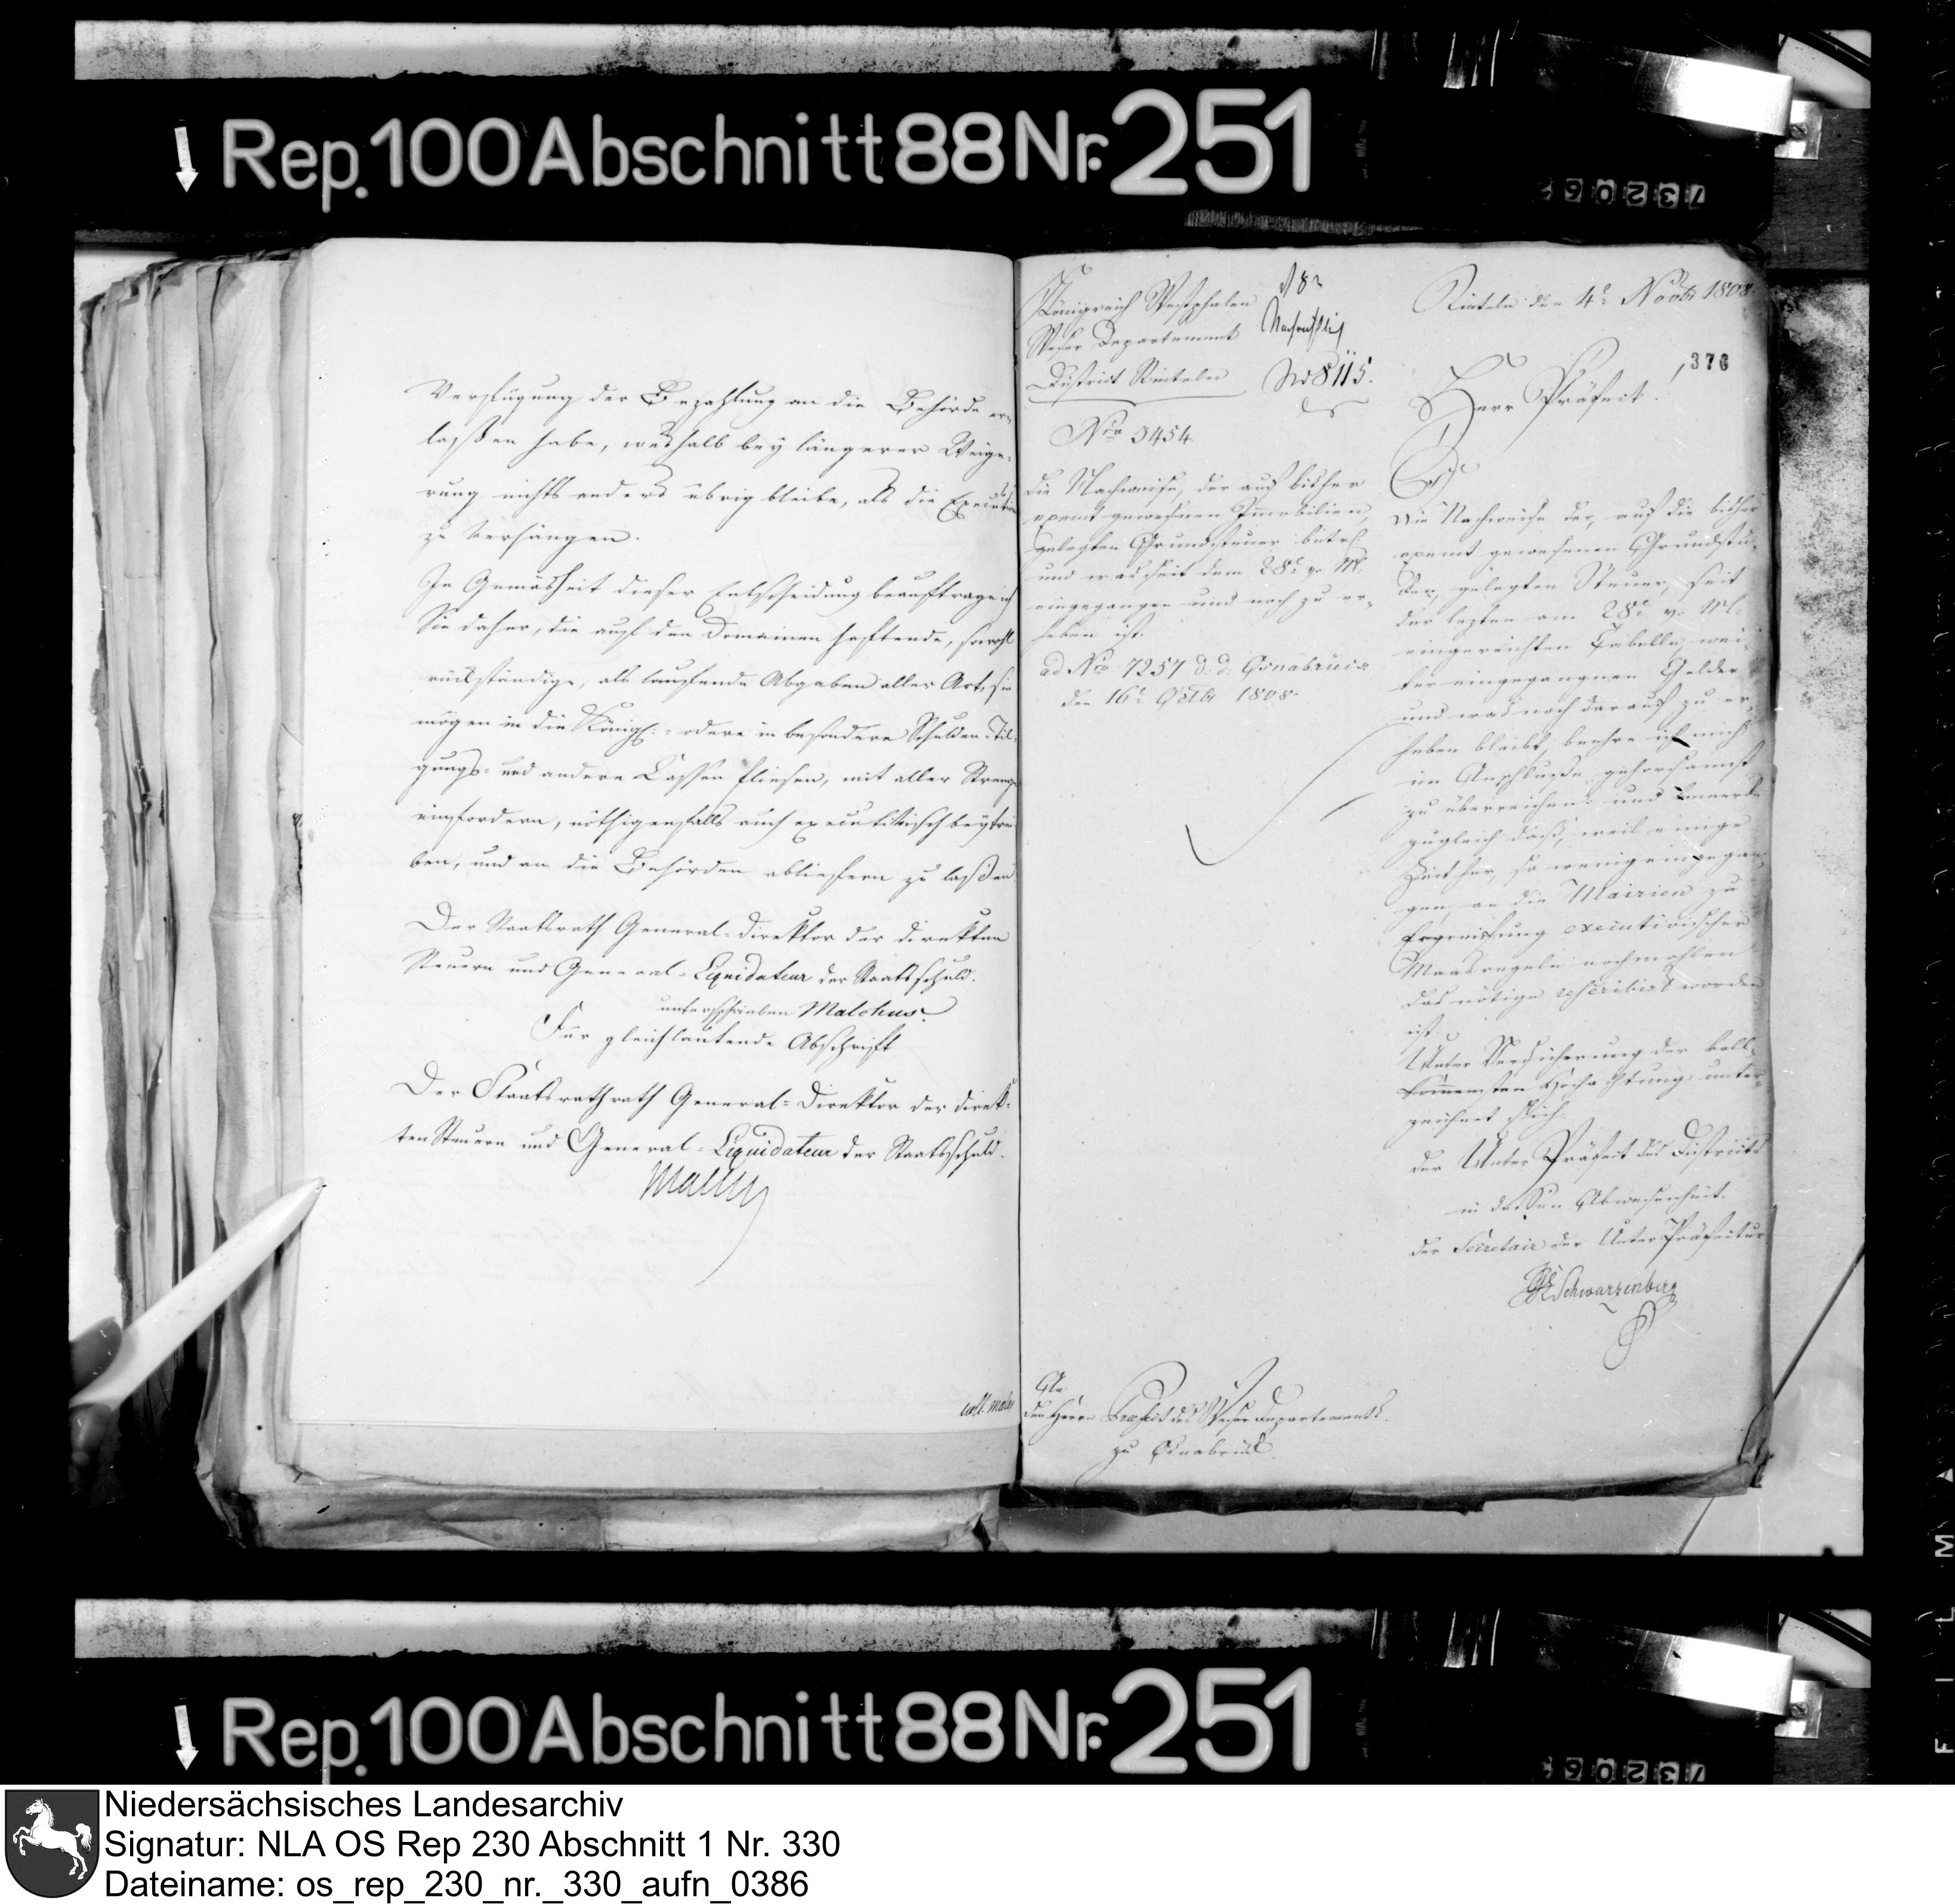 Rep. 100 Abschnitt 88 Nr. 251
Verfügung der Bezahlung an die Behörde er-
laßen habe, weshalb bey längerer Weige-
rung nichts anders übrig bleibe, als die Execution
zu verhängen.
In Gemäsheit dieser Entscheidung beauftrage ich
Sie daher, die auf den Domainen haftende, sowohl
rückständige, als laufende Abgaben aller Art, sie
mögen in die Königl. oder in besondere Schulden-Til-
gungs- und andere Cassen fließen, mit aller Strenge
einfordern, nöthigenfalls auch executivisch beytrei-
ben, und an die Behörden abliefern zu laßen
Der Staatsrath General-Direktor der direkten
Steuern und General-Liquidateur der Staatsschuld.
unterschrieben Malchus.
Für gleichlautende Abschrift
Der Staatsrathrath General-Direktor der direk-
ten Steuern und General-Liquidateur der Staatsschuld.
Malchus
Königreich Westphalen
Weser Departement
District Rinteln
No 8115.
Nro 3454
Die Nachweise, der auf bisher
exemt gewesenen Immobilien,
gelegten Grundsteuer betrf.
und was seit dem 28t v. M.
eingegangen und noch zu er-
heben ist.
ad Nro 7257 d. d. Osnabrück
den 16t Octbr 1808
An
den Herrn Präfect des Weser Departements.
zu Osnabrück.
Rinteln den 4t Novbr 1808.
376
Herr Präfect!
Die Nachweise der, auf die bisher
exemt gewesenen Grundstü-
cke, gelegten Steuer, seit
der lezten am 28t v. Mt.
eingereichten Tabelle, wei-
ter eingegangnen Gelder
und was noch darauf zu er-
heben bleibt, beehre ich mich
im Anschluße gehorsamst
zu überreichen und bemerke
zugleich daß, weil einige
Zeit her, so wenig eingegan-
gen, an die Mairien zu
Ergreifung executivischer
Maasregeln nochmahlen
das nötige rescribirt worden
ist.
Unter Versicherung der voll-
kommensten Hochachtung unter-
zeichnet sich
der Unter Präfect des Districts
in dessen Abwesenheit.
der Secretair der Unter Präfectur
Schwarzenberg
Rep. 100 Abschnitt 88 Nr. 251
Niedersächsisches Landesarchiv
Signatur: NLA OS Rep 230 Abschnitt 1 Nr. 330
Dateiname: os_rep_230_nr._330_aufn_0386